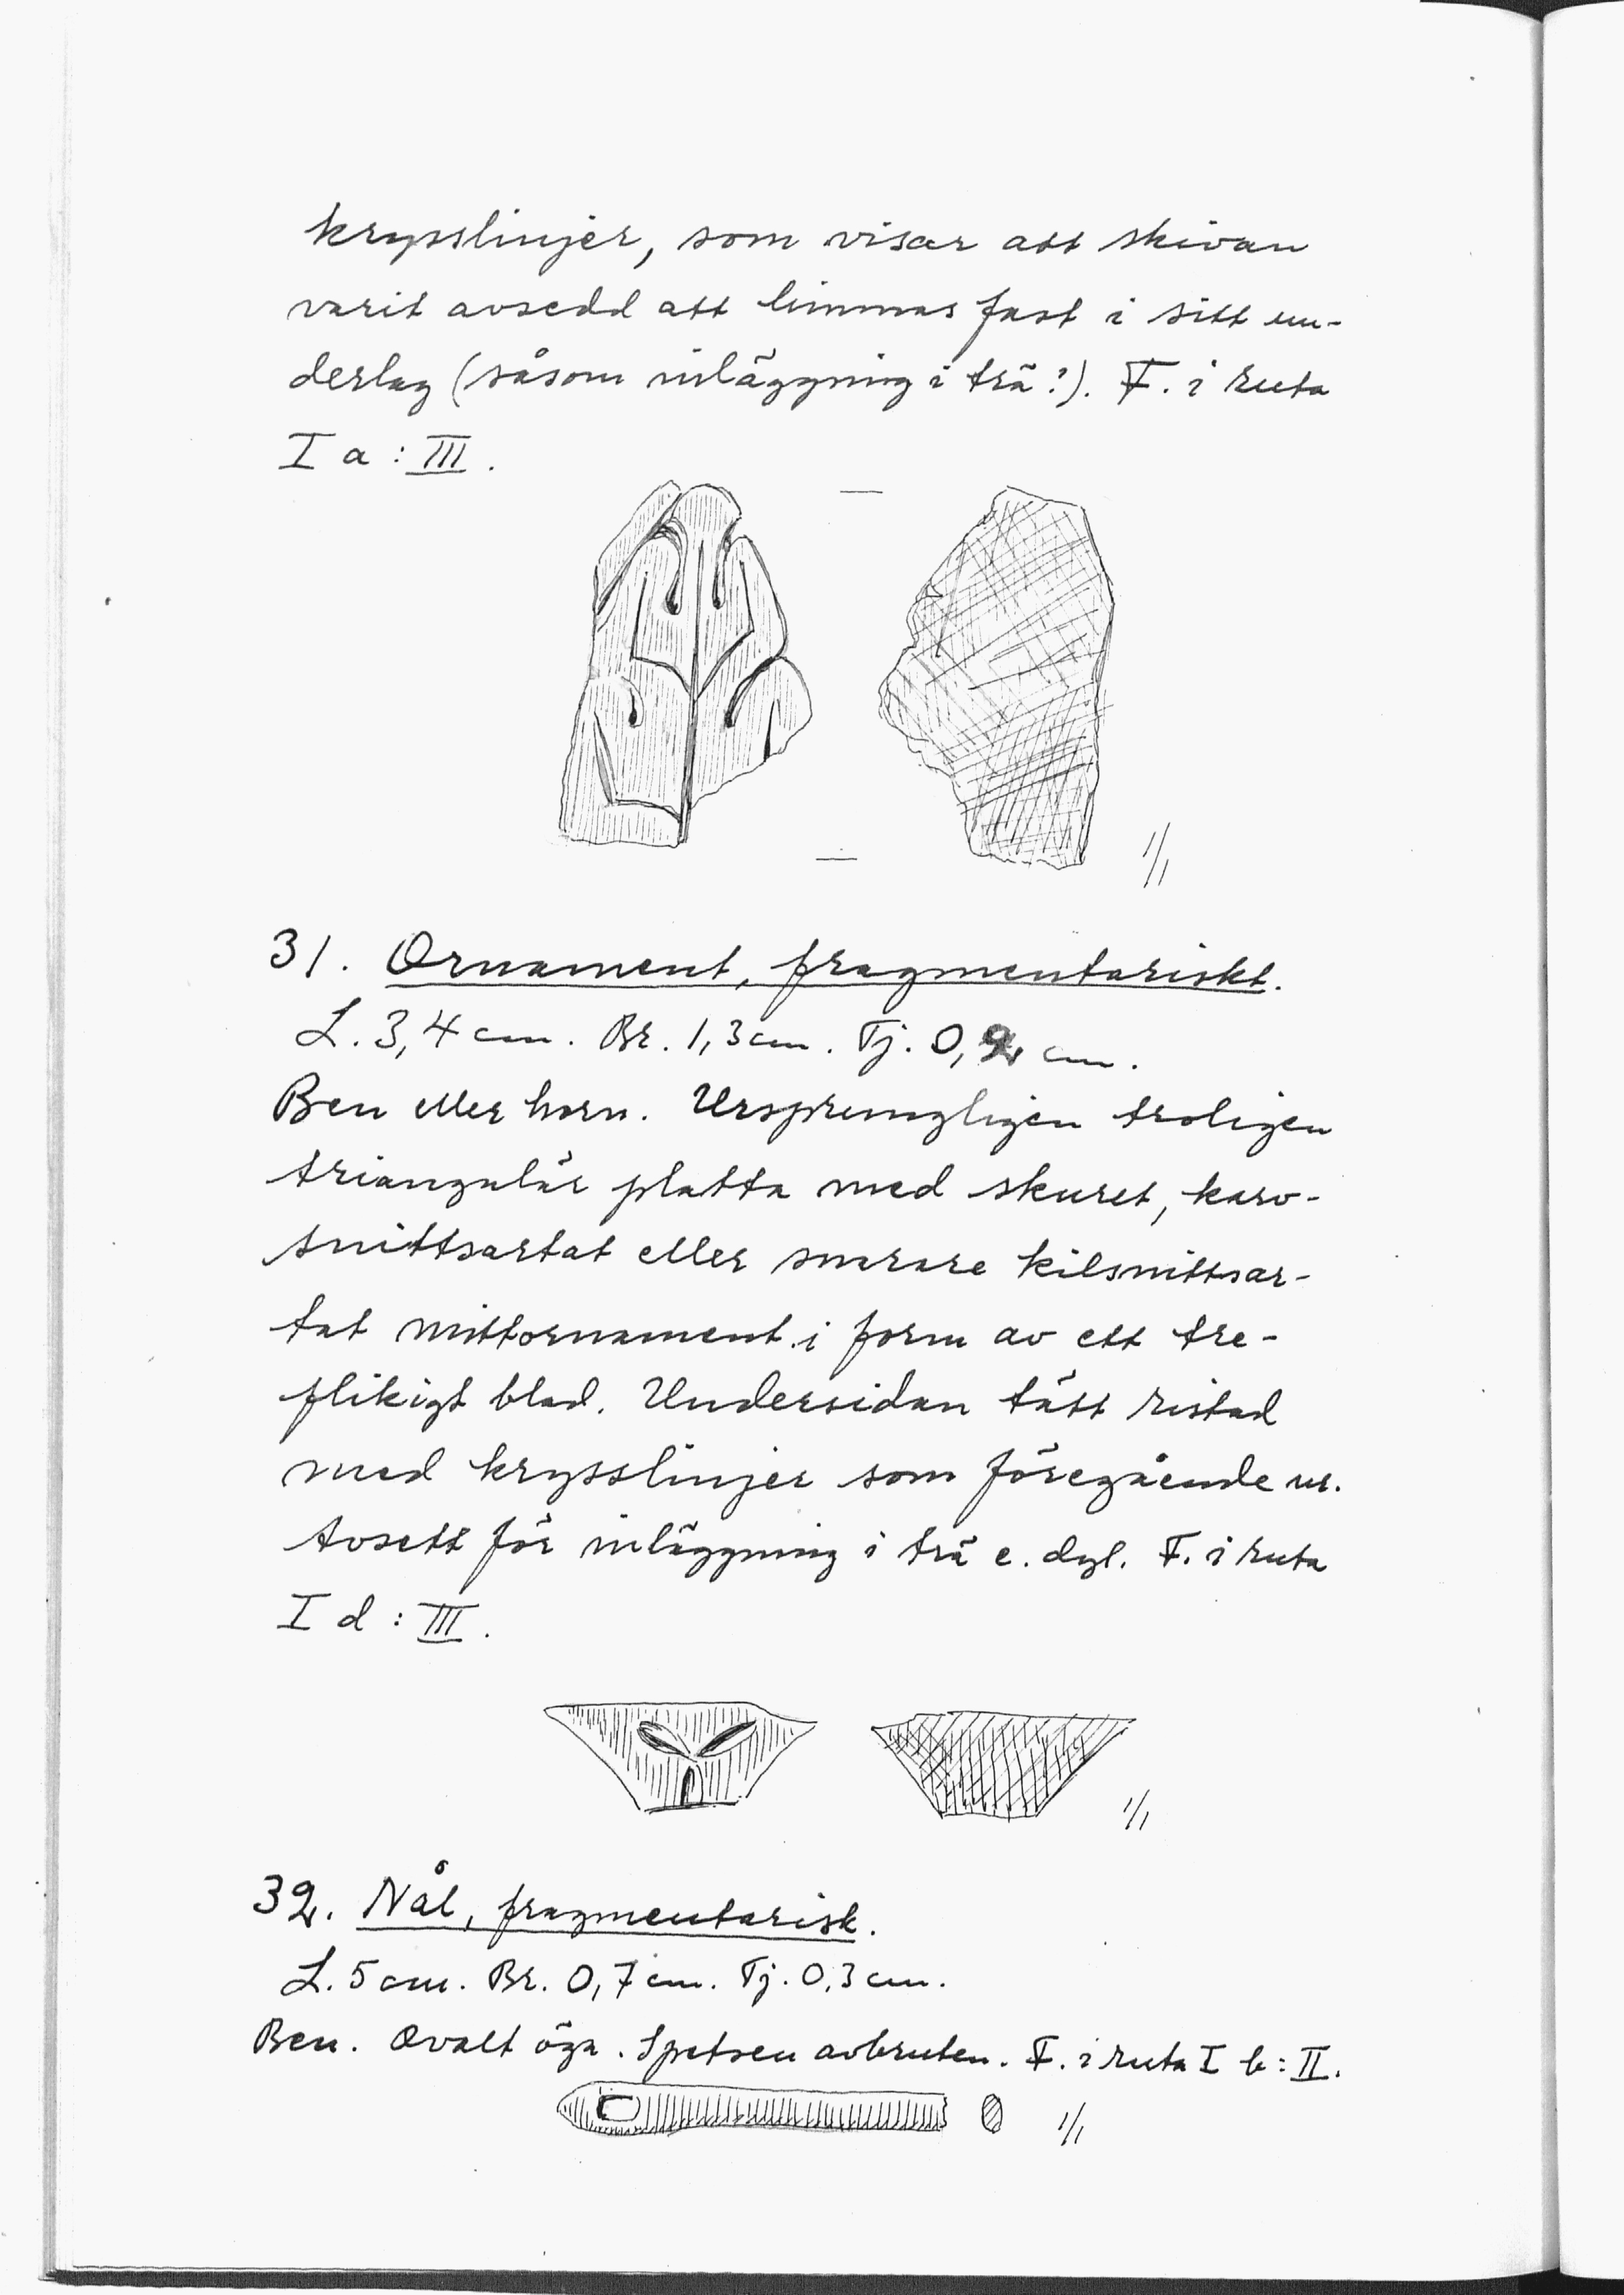 krysslinjer, som visar att skivan
varit avsedd att limmas fast i sitt un-
derlag (såsom inläggning i trä?). F. i ruta
I a : III .
1/1
31. Ornament, fragmentariskt.
L. 3,4 cm. Br. 1,3 cm. Tj. 0,2 cm.
Ben eller horn. Ursprungligen troligen
triangulär platta med skuret, karv-
snittsartat eller snarare kilsnittsar-
tat mittornament i form av ett tre-
flikigt blad. Undersidan tätt ristad
med krysslinjer som föregående nr.
Avsett för inläggning i trä e. dyl. F. i ruta
I d : III .
1/1
32. Nål, fragmentarisk.
L. 5 cm. Br. 0,7 cm. Tj. 0,3 cm.
Ben. Ovalt öga. Spetsen avbruten. F. i ruta I b : II.
1/1